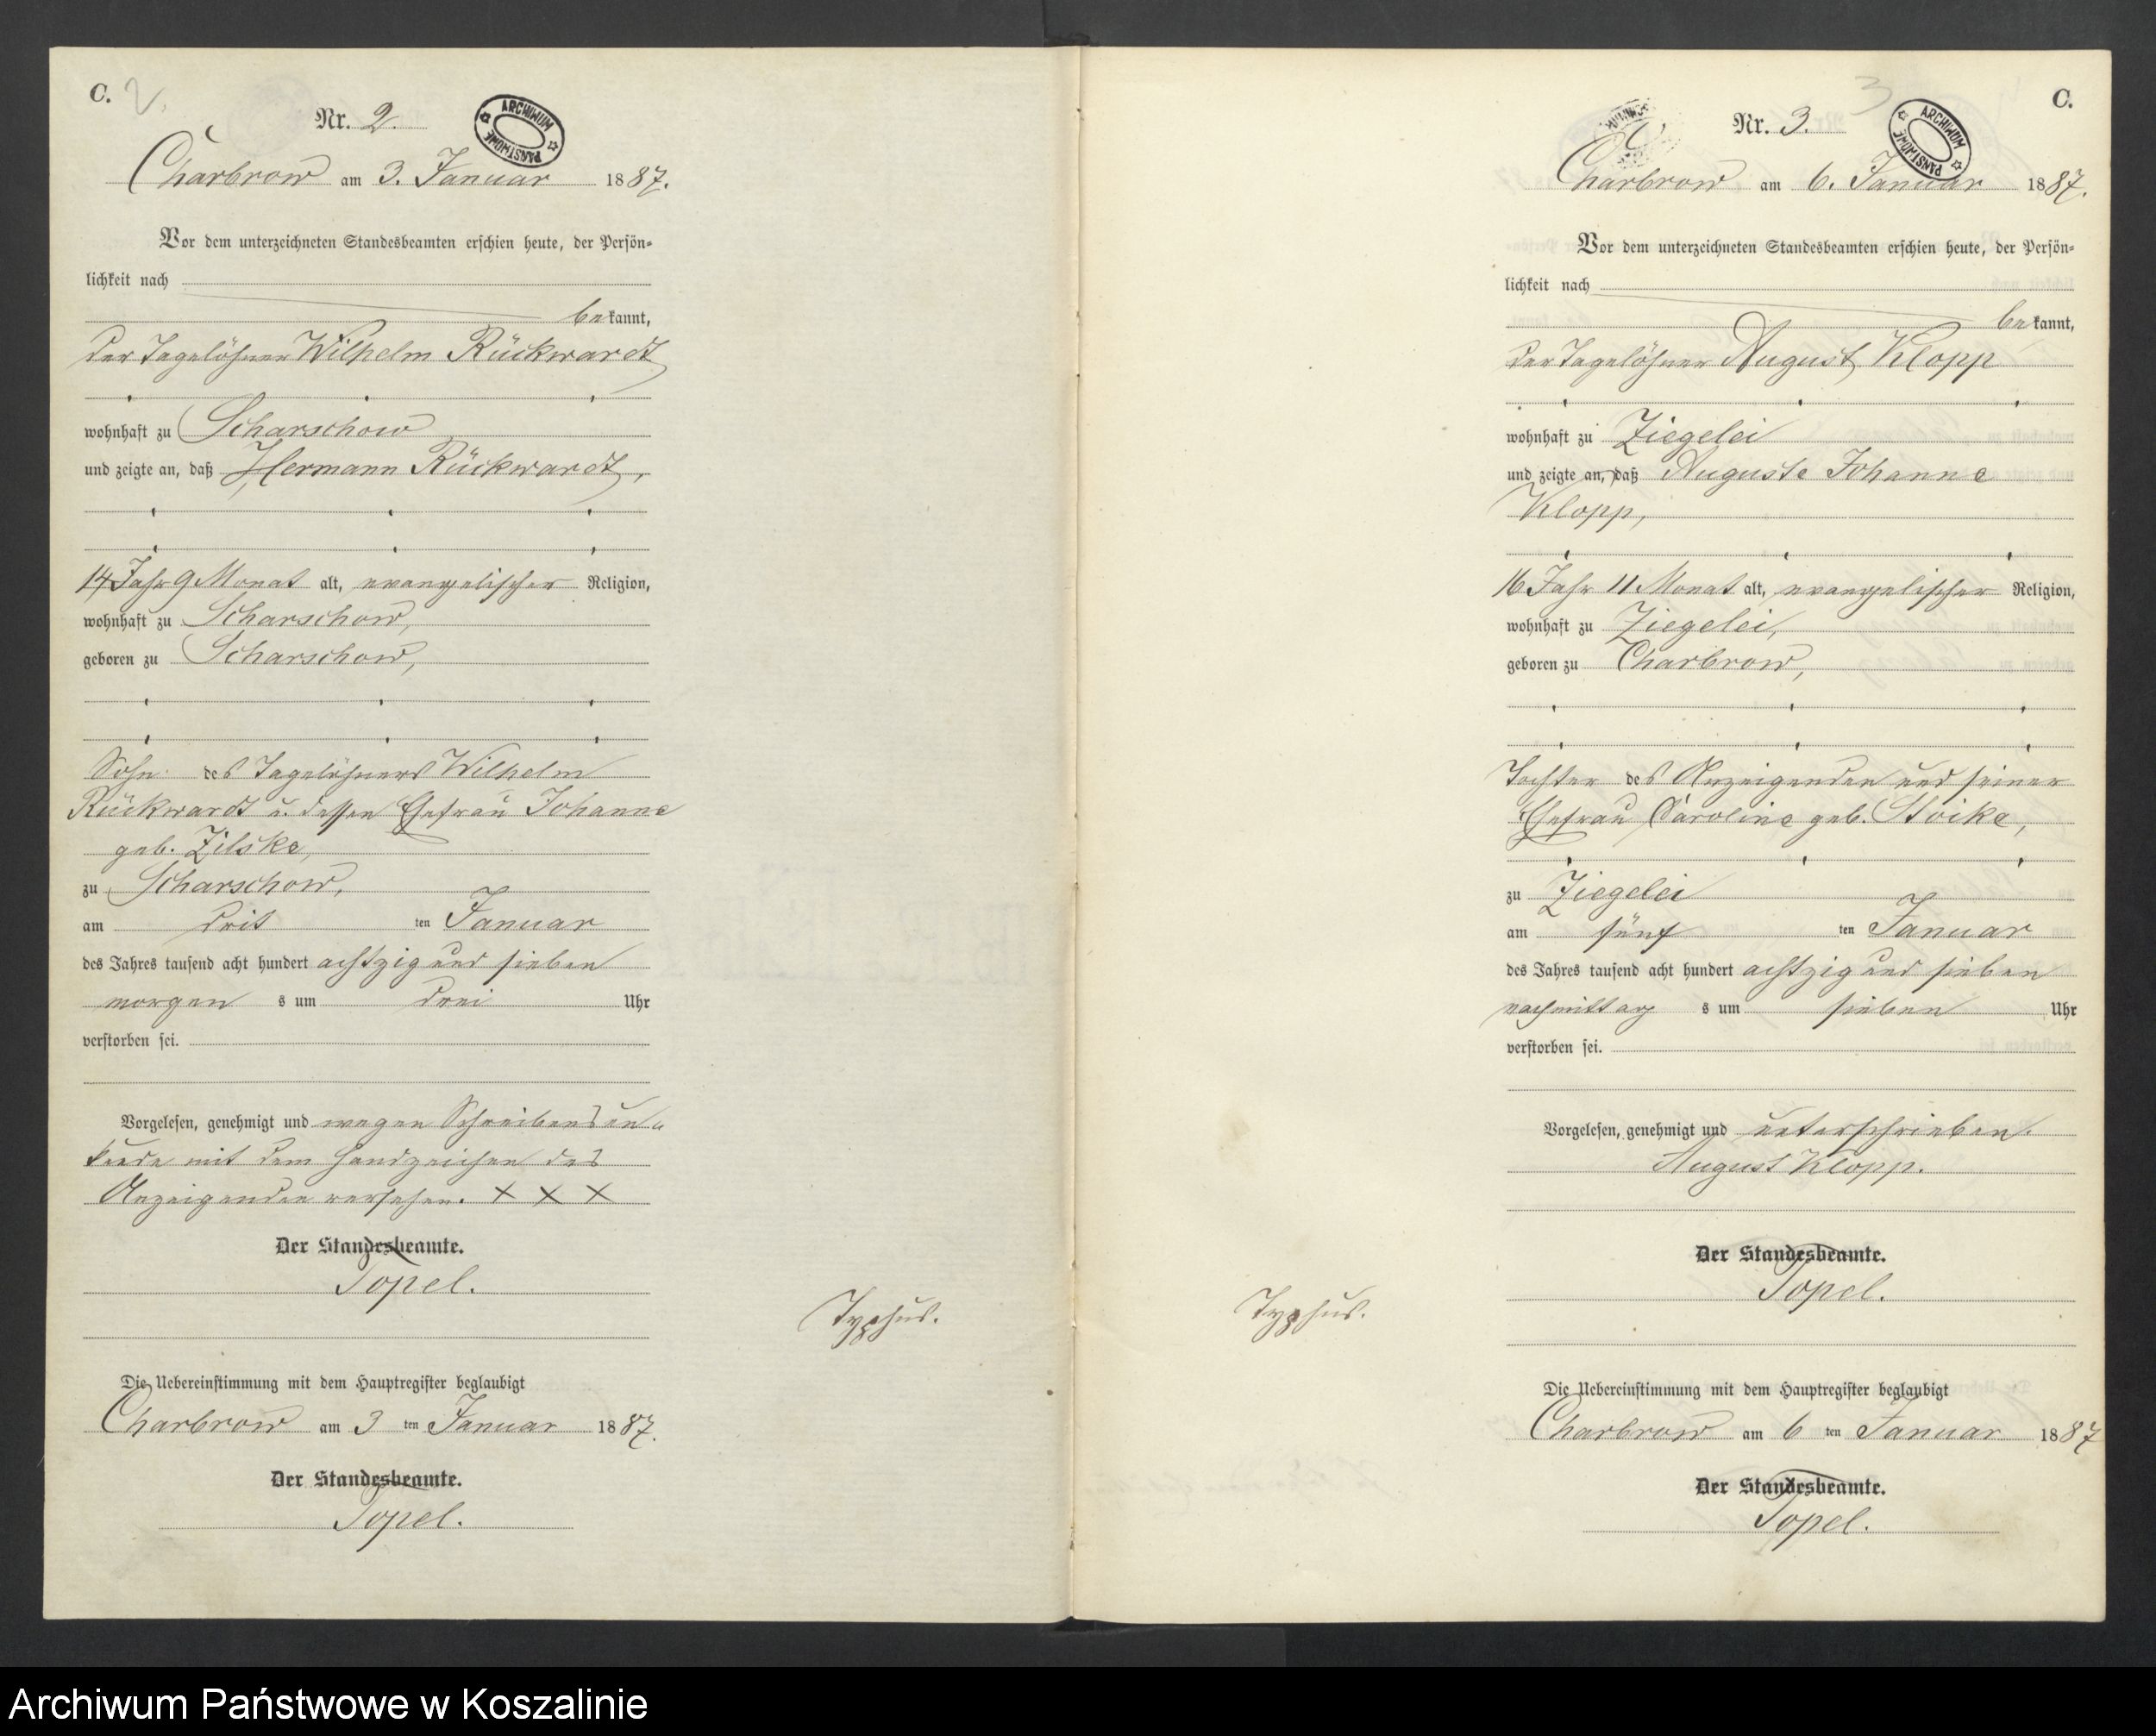 C. 2.
Nr. 2.
ARCHIWUM PAŃSTWOWE
Charbrow am 3. Januar 1887.
Vor dem unterzeichneten Standesbeamten erschien heute, der Persön=
lichkeit nach
bekannt,
der Tagelöhner Wilhelm Rückwardt
wohnhaft zu Scharschow
und zeigte an, daß Hermann Rückwardt,
14 Jahr 9 Monat alt, evangelischer Religion,
wohnhaft zu Scharschow,
geboren zu Scharschow,
Sohn des Tagelöhners Wilhelm
Rückwardt u. dessen Ehefrau Johanne
geb. Zilske,
zu Scharschow,
am drit ten Januar
des Jahres tausend acht hundert achtzig und sieben
morgen s um drei Uhr
verstorben sei.
Vorgelesen, genehmigt und wegen Schreibensun=
kunde mit dem Handzeichen des
Anzeigenden versehen. X X X
Der Standesbeamte.
Topel.
Typhus.
Die Uebereinstimmung mit dem Hauptregister beglaubigt
Charbrow am 3 ten Januar 1887.
Der Standesbeamte.
Topel.
3 C.
Nr. 3.
ARCHIWUM PAŃSTWOWE
Charbrow am 6. Januar 1887.
Vor dem unterzeichneten Standesbeamten erschien heute, der Persön=
lichkeit nach
bekannt,
der Tagelöhner August Klopp
wohnhaft zu Ziegelei
und zeigte an, daß Auguste Johanne
Klopp,
16 Jahr 11 Monat alt, evangelischer Religion,
wohnhaft zu Ziegelei,
geboren zu Charbrow,
Tochter des Anzeigenden und seiner
Ehefrau Caroline geb. Stoike,
zu Ziegelei
am fünf ten Januar
des Jahres tausend acht hundert achtzig und sieben
nachmittag s um sieben Uhr
verstorben sei.
Vorgelesen, genehmigt und unterschrieben.
August Klopp.
Der Standesbeamte.
Topel.
Typhus.
Die Uebereinstimmung mit dem Hauptregister beglaubigt
Charbrow am 6 ten Januar 1887
Der Standesbeamte.
Topel.
Archiwum Państwowe w Koszalinie